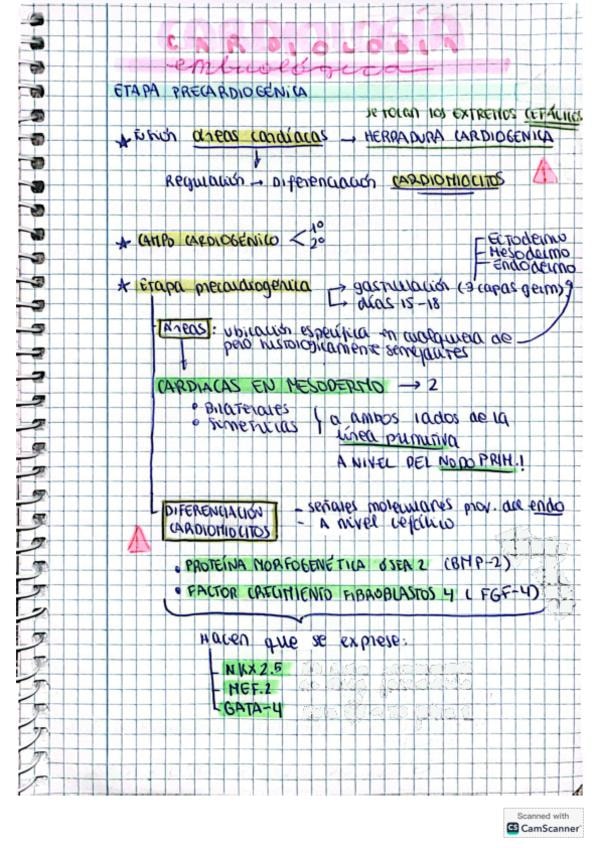 CARDIOLOGÍA
embriológica
ETAPA PRECARDIOGÉNICA
se tocan los EXTREMOS CEFÁLICOS
áreas cardíacas → HERRADURA CARDIOGENICA
Regulación → Diferenciación CARDIOMIOCITOS
CAMPO CARDIOGÉNICO < 1º
2º
Ectodermo
Mesodermo
Endodermo
Etapa precardiogénica → gastrulación (3 capas germ)
→ días 15-18
ÁREAS : ubicación específica en cualquiera de
pero histologicamente semejantes
CARDIACAS EN MESODERMO → 2
• Bilaterales
• Simétricas
a ambos lados de la
línea primitiva
A NIVEL DEL NODO PRIM.!
DIFERENCIACIÓN
CARDIOMIOCITOS
- señales moleculares prov. del endo
- A nivel cefálico
• PROTEÍNA MORFOGENÉTICA ÓSEA 2 (BMP-2)
• FACTOR CRECIMIENTO FIBROBLASTOS 4 (FGF-4)
Hacen que se exprese:
- NKX2.5
- MEF.2
- GATA-4
Scanned with
CS CamScanner